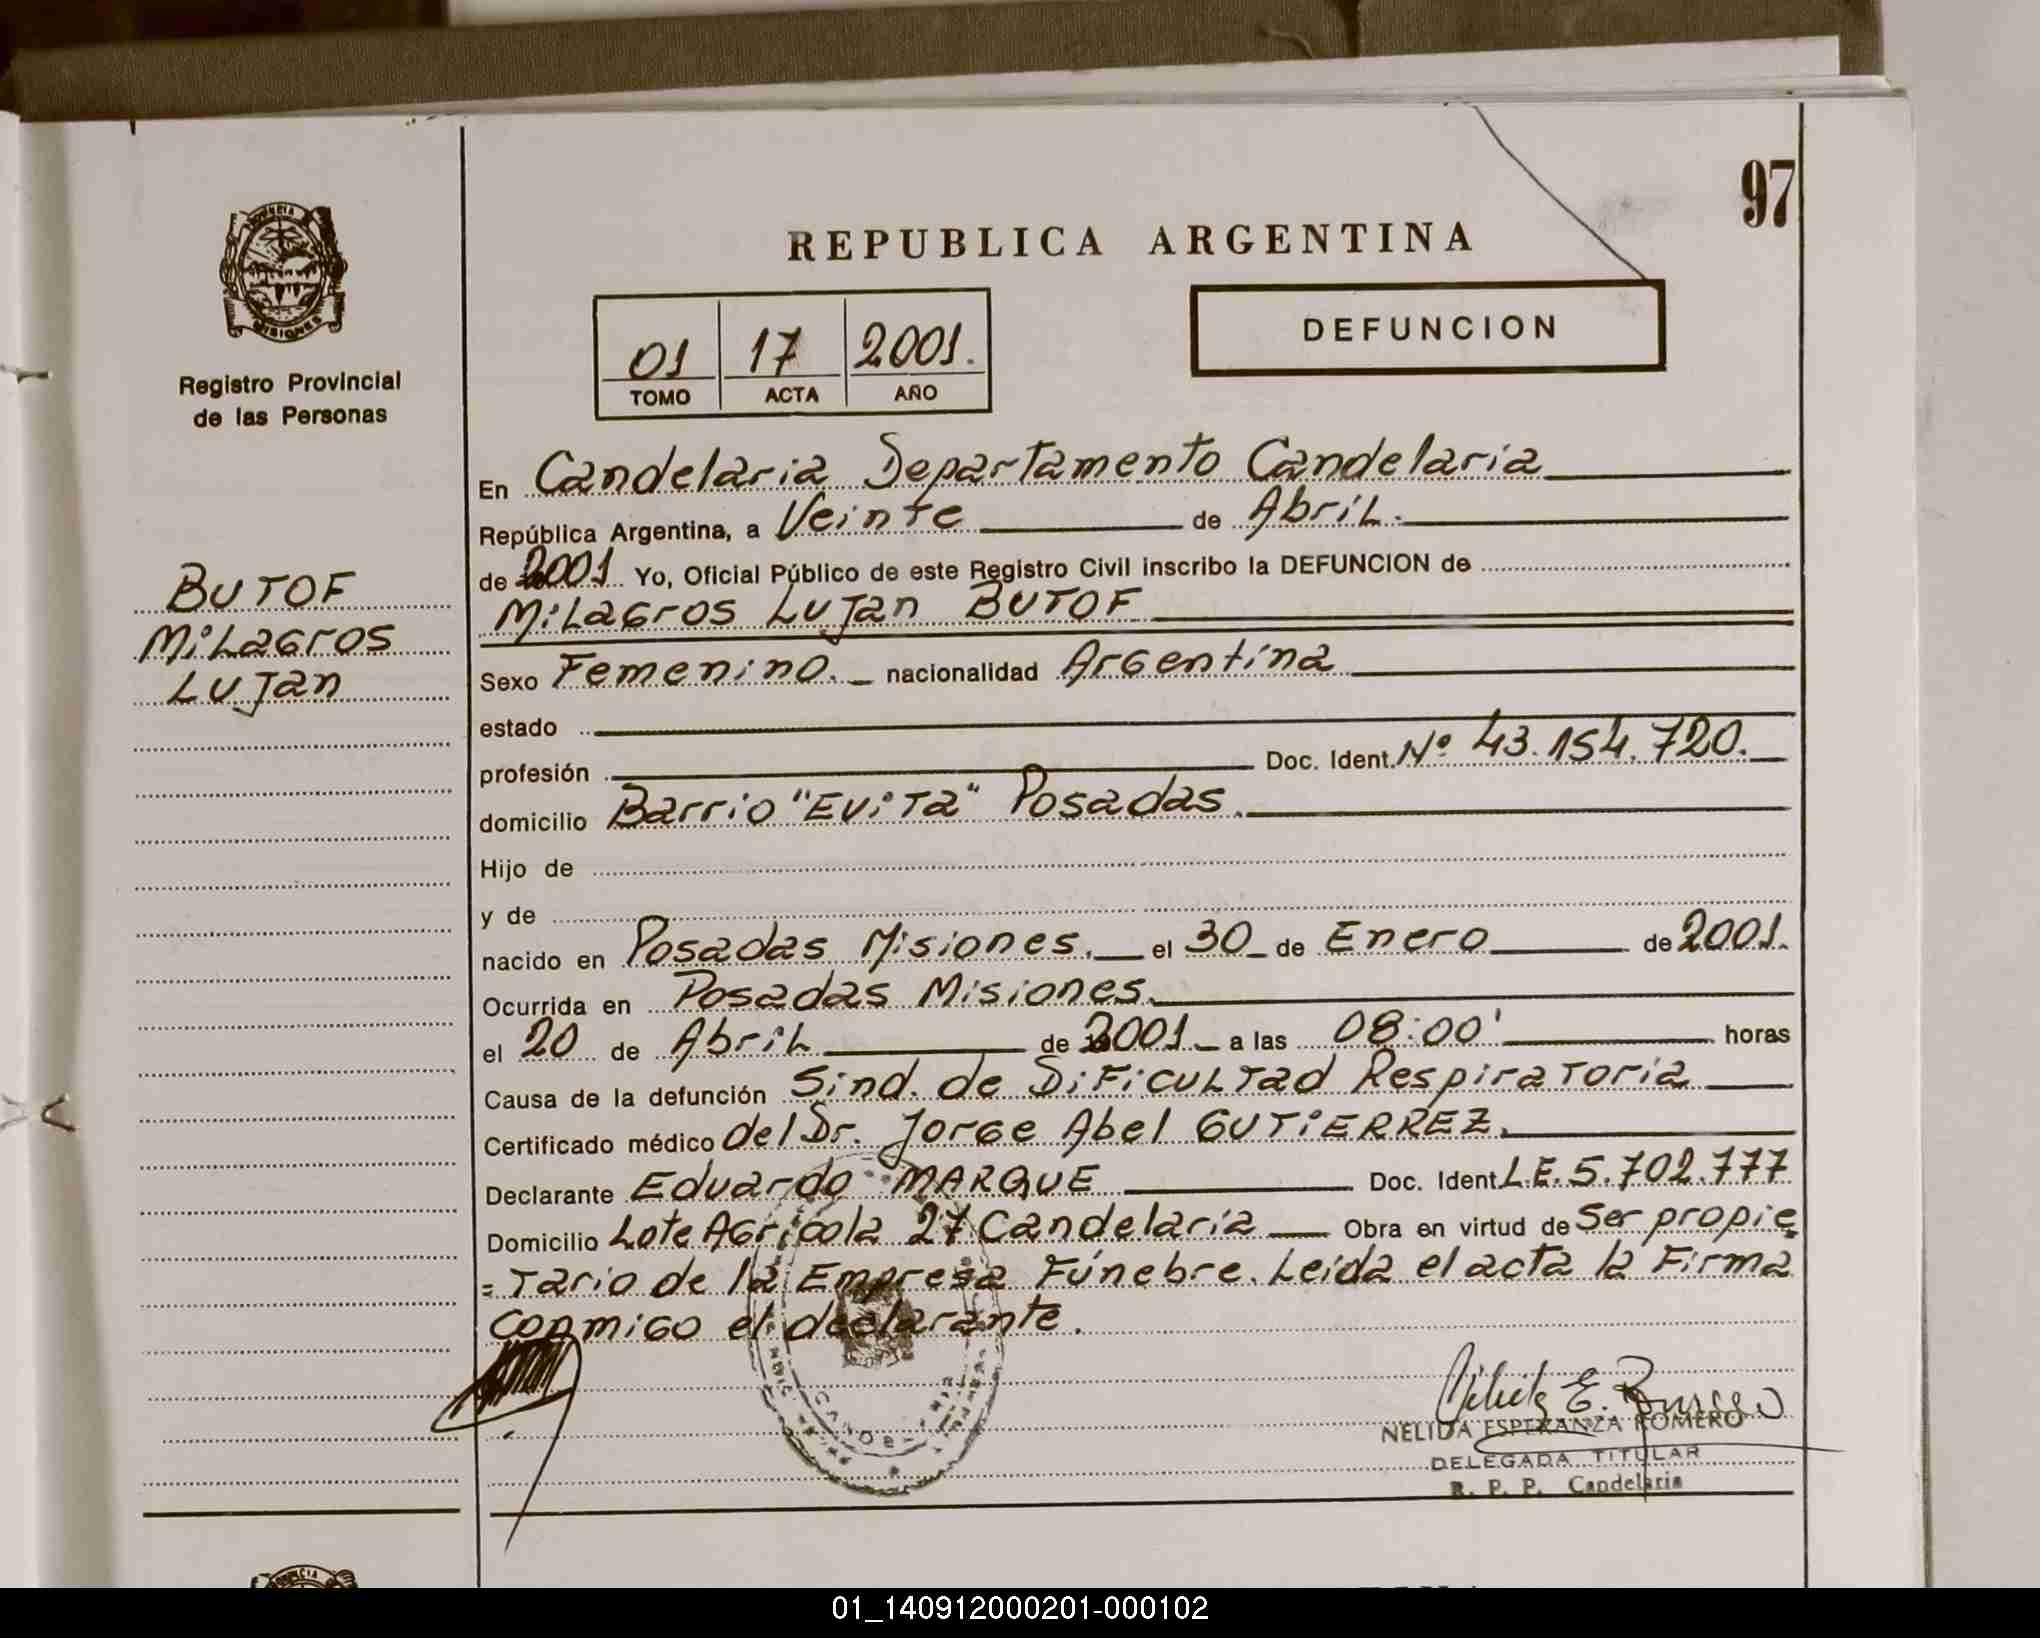 97
REPUBLICA ARGENTINA
PROVINCIA
MISIONES
Registro Provincial
de las Personas
01 17 2001.
TOMO ACTA AÑO
DEFUNCION
BUTOF
MiLaGros
LuJan
En Candelaria Departamento Candelaria
República Argentina, a Veinte de AbriL.
de 2001 Yo, Oficial Público de este Registro Civil inscribo la DEFUNCION de
MiLaGros LuJan BUTOF
Sexo Femenino. nacionalidad ArGentina
estado
profesión Doc. Ident. Nº 43.154.720.
domicilio Barrio "EviTa" Posadas.
Hijo de
y de
nacido en Posadas Misiones. el 30 de Enero de 2001.
Ocurrida en Posadas Misiones.
el 20 de AbriL de 2001 a las 08:00' horas
Causa de la defunción Sind. de DiFicuLTad RespiraToria
Certificado médico del Dr. Jorge Abel GUTiERREZ.
Declarante Eduardo MARQUE Doc. Ident. L.E. 5.702.777
Domicilio Lote AGrícola 27 Candelaria Obra en virtud de Ser propie
= Tario de la Empresa Fúnebre. Leida el acta la Firma
conmiGo el declarante.
NELIDA ESPERANZA ROMERO
DELEGADA TITULAR
R. P. P. Candelaria
01_140912000201-000102